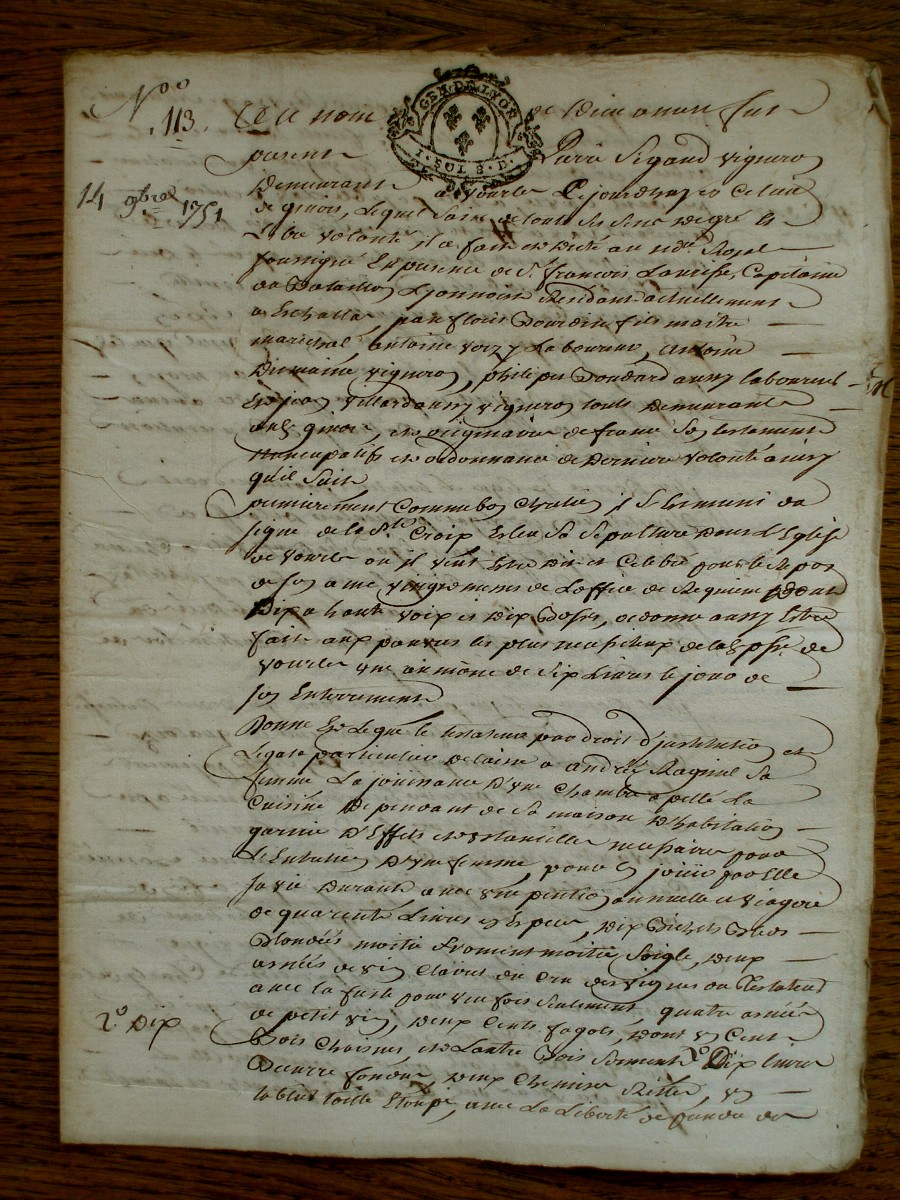 Noo
113
14 9bres 1751
GEN. DE. LYON
1. SOL 8. D.
Au nom de Dieu amen fut
present Pierre Sigaud vigneron
Demeurant a Vourles
Libre volonté il a fait et dicté au Nore Royal
soussigné En presence de Sr. françois Capitaine
du Bataillon Lyonnois Residant actuellement
a Eschallas, fils maitre
marechal, antoine Laboureur, antoine
Dumaine vigneron, philipes Boudard aussy laboureur
Et jean Villard aussy vigneron touts Demeurants
et originaire de france Son testament
nuncupatif et ordonnance de Derniere volonté ainsy
qu'il Suit
premierement Comme bon Chretien il S'est muni du
signe de la Ste. Croix Esleu Sa Sepulture Dans L'Eglise
de Vourles ou il veut Estre Dit et Celebré pour le Repos
de son ame vingt messes de L'office de Requiem
Dix a haute voix et Dix Basses, ordonne aussy Estre
fait aux pauvres les plus necessiteux de la psse. de
Vourles une aumône de Six Livres le jour de
son Enterrement
Donne Et Legue le testateur par droit d'institution et
Legats particulier a andrée Raginel Sa
femme La joüissance D'une Chambre apellé La
Cuisine Dependant de Sa maison D'habitation
garnie D'Effets et Ustancilles necessaires pour
L'Entretien D'une femme, pour En joüir par Elle
Sa vie Durant, avec une pention annuelle et viagere
de quarente Livres en Espece, Dix Bichets Bleds
moitié froment moitié Seigle, Deux
asnées de vin Clairet du Cru des vignes du Testateur
avec la fuste pour une fois Seulement, quatre asnées
de petit vin, Deux Cents fagots, Dont un Cent
Bois Chaisne, et L'autre Bois Serment 2o Dix Livres
2o Dix
Beurre fondu, Deux Chemises, un
tablier toille Etoupe, avec La Liberté de prendre du